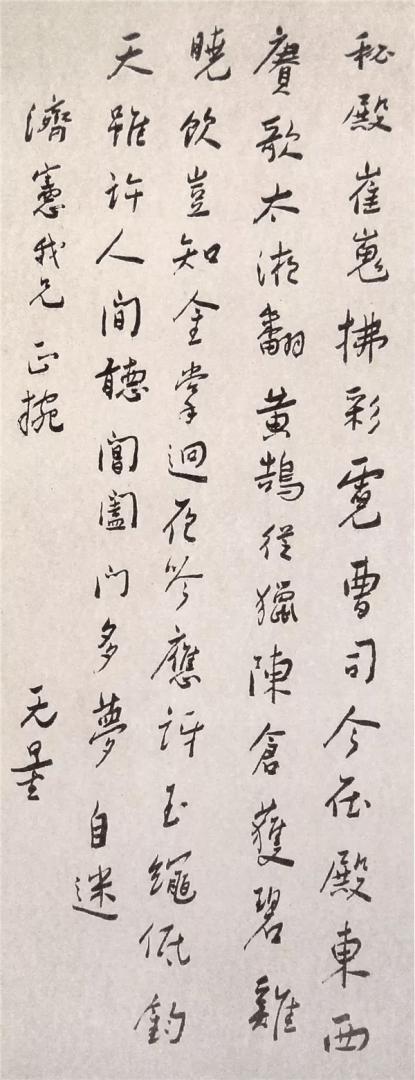 秘殿崔嵬拂彩霓曹司今在殿東西
賡歌太液翻黄鵠從獵陳倉獲碧雞
曉飲豈知金掌逈夜吟應訝玉繩低鈞
天雖許人間聽閶闔門多夢自迷
濟憲我兄正捥 无量